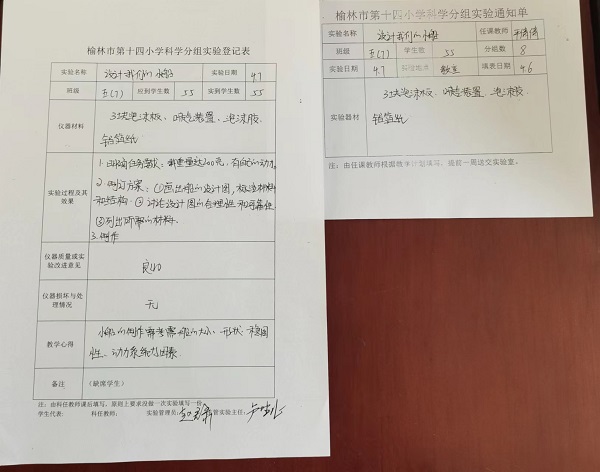 榆林市第十四小学科学分组实验登记表
实验名称 设计我们的小船 实验日期 4.7
班级 五(7) 应到学生数 55 实到学生数 55
仪器材料 32块泡沫板、吸管装置、泡沫胶、
铝箔纸
实验过程及其效果
1.明确任务要求:载重量达200克,有自己的动力。
2.制订方案:①画出船的设计图,标注材料
和结构 ②讨论设计图的合理性和可靠性
③列出所需的材料。
3.制作
仪器质量或实验改进意见 良好
仪器损坏与处理情况 无
教学心得 小船的制作需考虑船的大小、形状、稳固
性、动力系统等因素.
备注 (缺席学生)
注:由科任教师课后填写,原则上要求没做一次实验填写一份
学生代表: 科任教师: 实验管理员: 管实验主任:
榆林市第十四小学科学分组实验通知单
实验名称 设计我们的小船 任课教师
班级 五(7) 学生数 55 分组数 8
实验日期 4.7 实验地点 教室 填表日期 4.6
实验器材 32块泡沫板、吸管装置、泡沫胶、
铝箔纸
注:由任课教师根据教学计划填写,提前一周送交实验室。